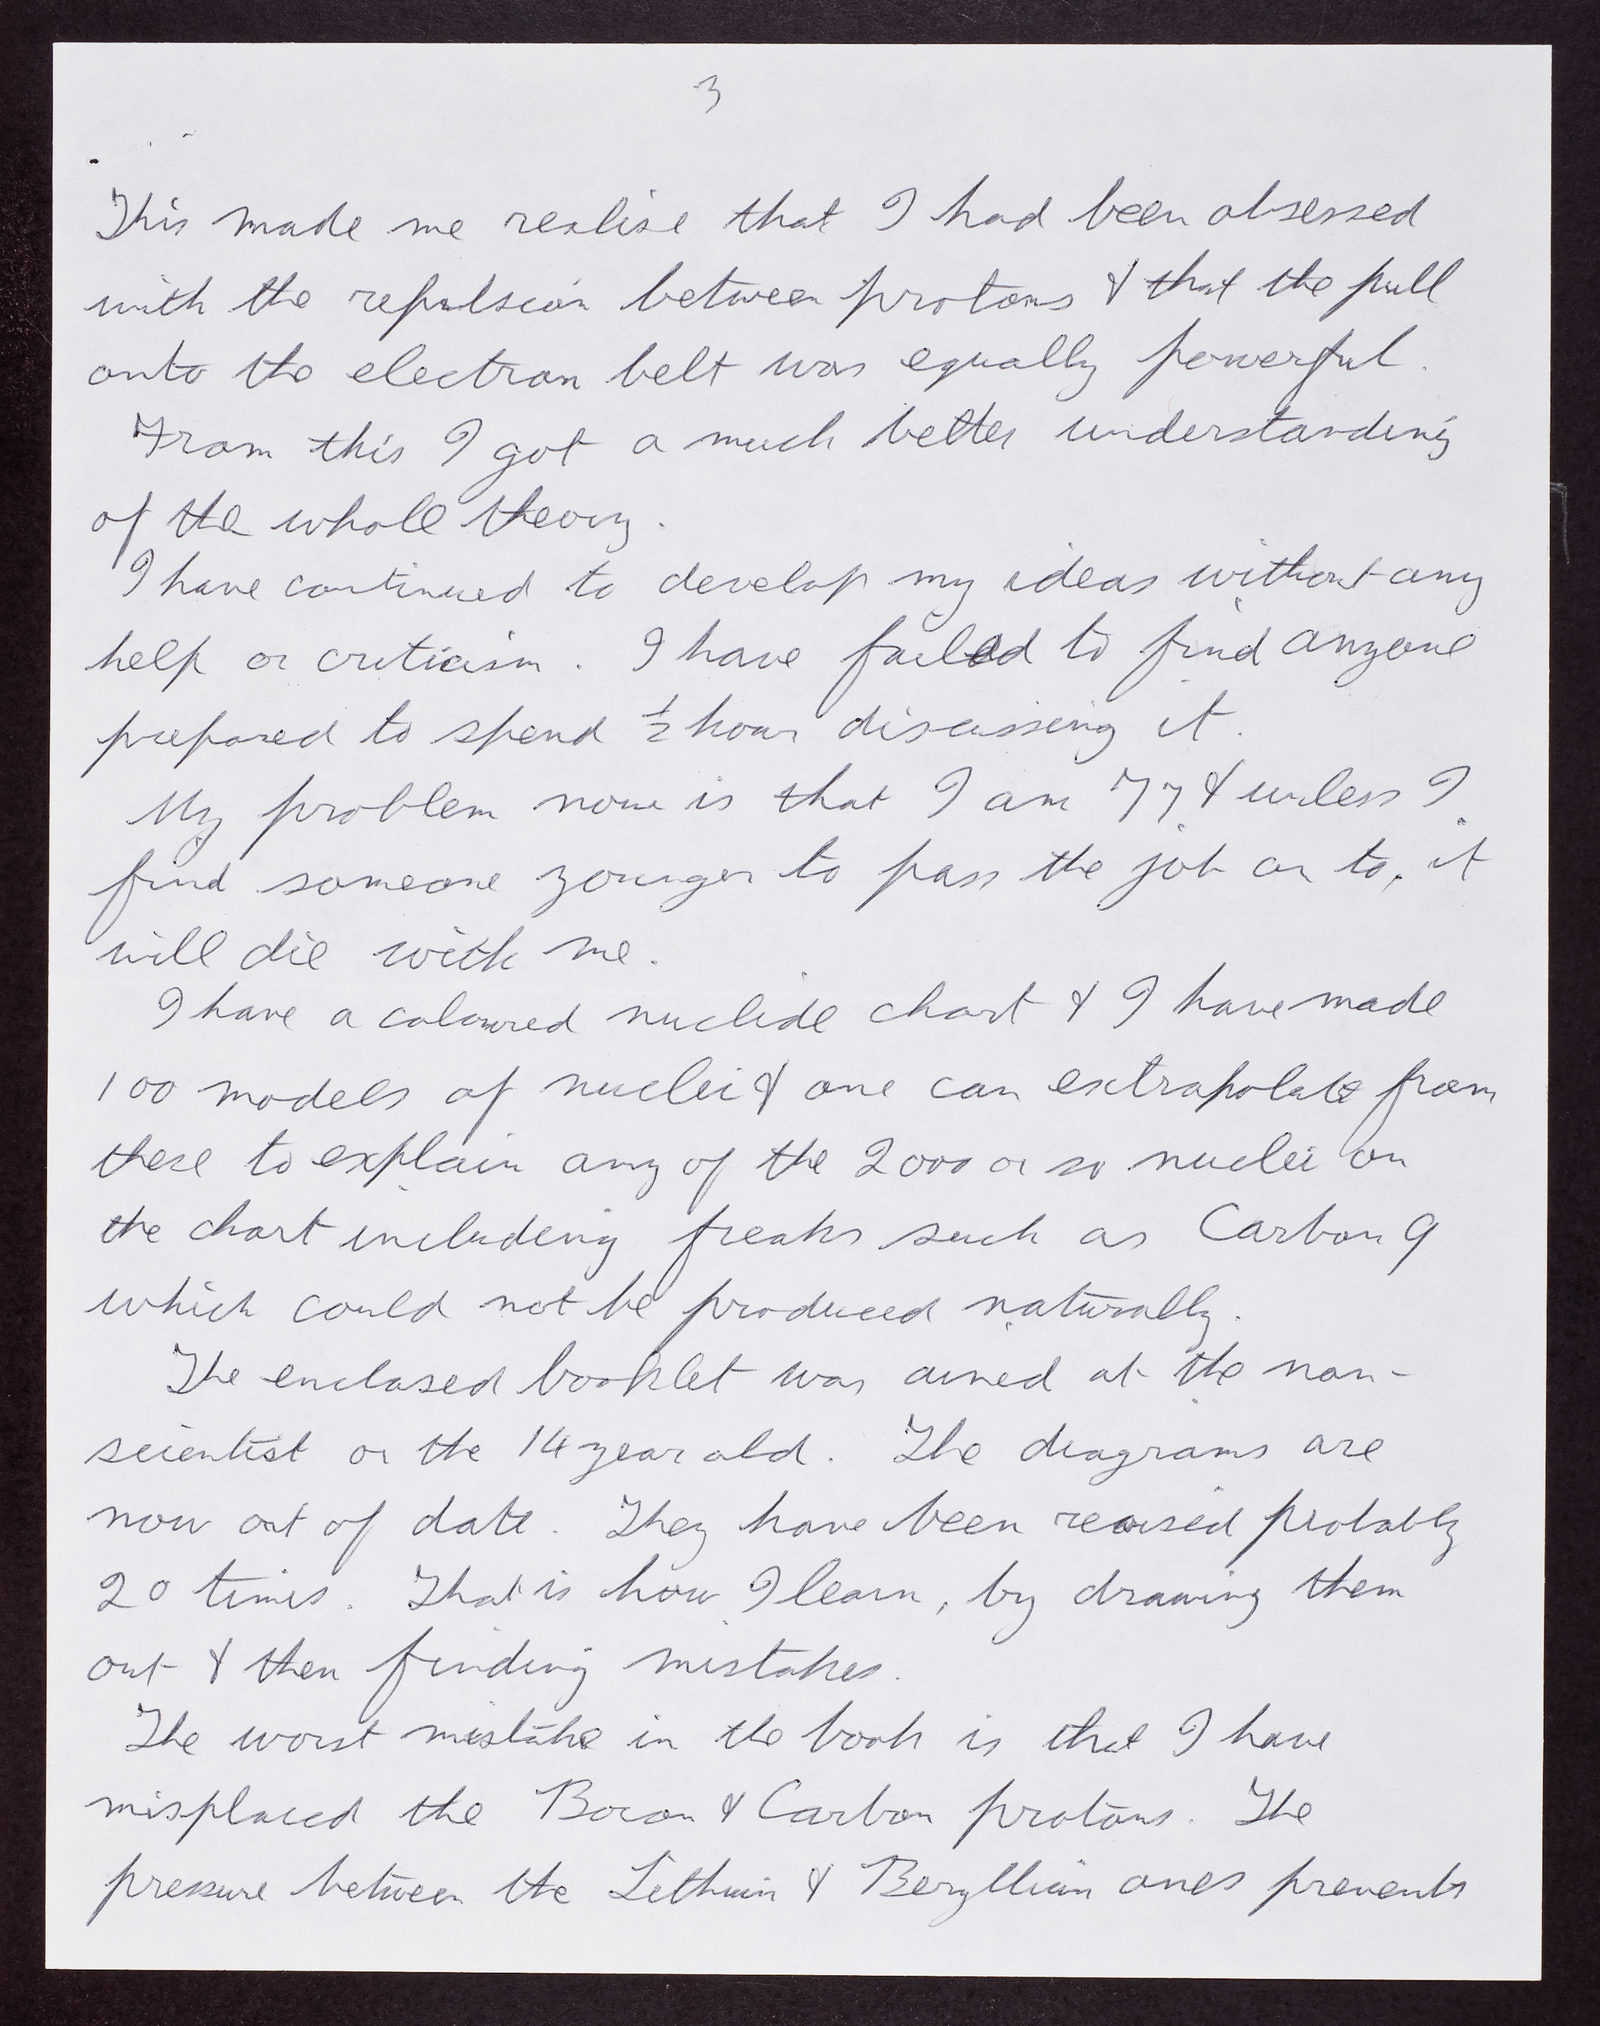 3
This made me realise that I had been obsessed
with the repulsion between protons & that the pull
onto the electron belt was equally powerful.
From this I got a much better understanding
of the whole theory.
I have continued to develop my ideas without any
help or criticism. I have failed to find anyone
prepared to spend ½ hour discussing it.
My problem now is that I am 77 & unless I
find someone younger to pass the job on to, it
will die with me.
I have a coloured nuclide chart & I have made
100 models of nuclei & one can extrapolate from
these to explain any of the 2000 or so nuclei on
the chart including freaks such as Carbon 9
which could not be produced naturally.
The enclosed booklet was aimed at the non-
scientist or the 14 year old. The diagrams are
now out of date. They have been revised probably
20 times. That is how I learn, by drawing them
out & then finding mistakes.
The worst mistake in the book is that I have
misplaced the Boron & Carbon protons. The
pressure between the Lithium & Beryllium ones prevents